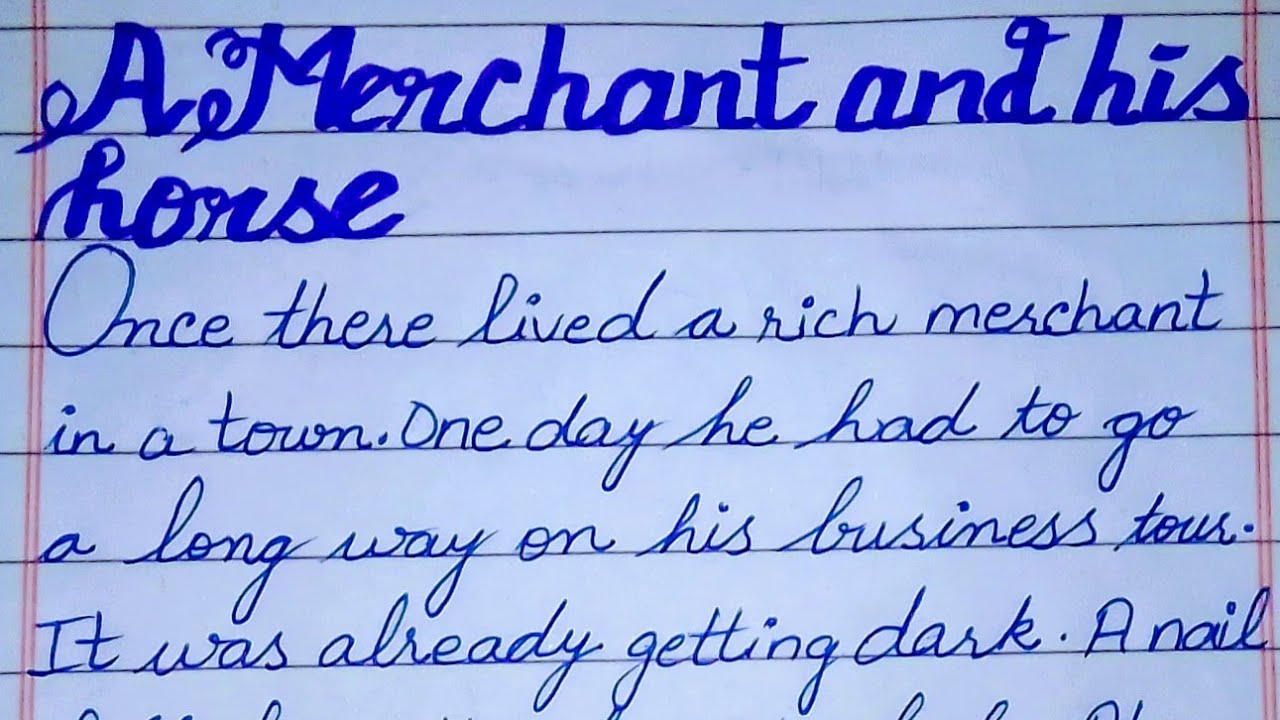 A Merchant and his
horse
Once there lived a rich merchant
in a town. One day he had to go
a long way on his business tour.
It was already getting dark. A nail